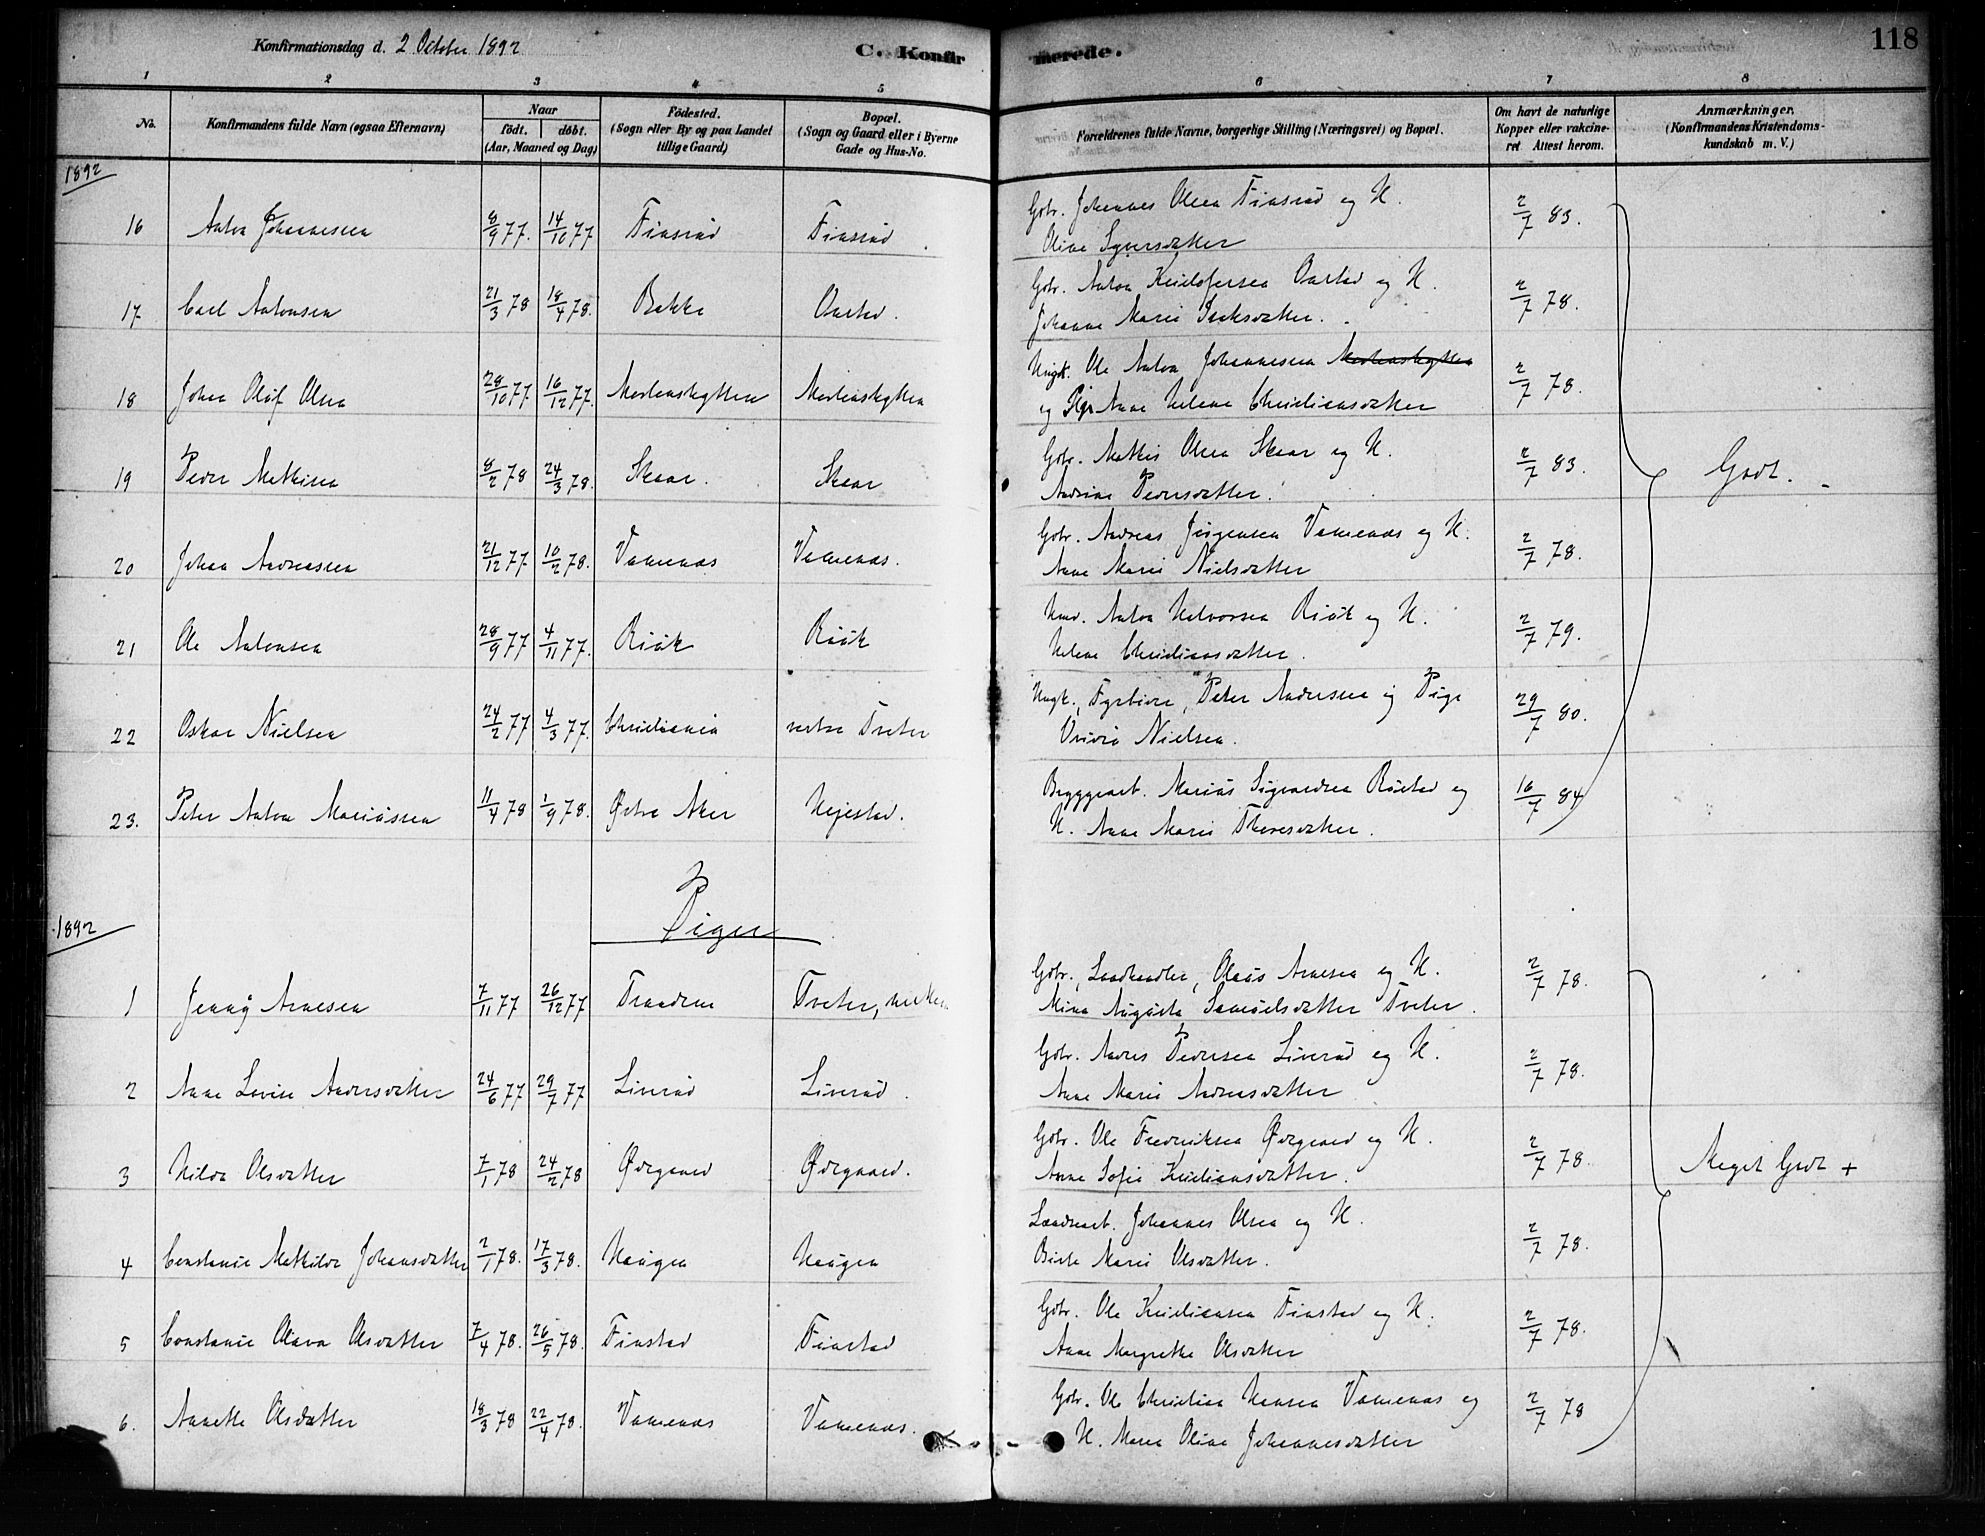 Konfirmationsdag d. 2 October 1892
C. Konfirmerede.
118
1 2 3 4 5 6 7 8
No.
Konfirmandens fulde Navn (ogsaa Efternavn)
Naar
født. døbt.
(Aar, Maaned og Dag)
Fødested.
(Sogn eller By og paa Landet
tillige Gaard)
Bopæl.
(Sogn og Gaard eller i Byerne
Gade og Hus-No.
Forældrenes fulde Navne, borgerlige Stilling (Næringsvei) og Bopæl.
Om havt de naturlige
Kopper eller vakcine-
ret Attest herom.
Anmærkninger.
(Konfirmandens Kristendoms-
kundskab m. V.)
1892
16 Anton Johannesen 8/9 77. 14/10 77 Finsrud Finsrud. Gbr. Johannes Olsen Finsrud og H. 2/7 83.
Oline Syversdatter
17 Carl Antonsen 21/3 78 18/4 78. Bakke Ourstad. Gbr. Anton Kristofersen Ourstad og H. 2/7 78.
Johanne Marie Isaksdatter.
18 Johan Olaf Olsen 28/10 77 16/12 77. Mortenshytten Mortenshytten Ungk. Ole Anton Johannesen Mortenshytten 2/7 78.
og Pige Anne Helene Christiansdatter
19 Peder Mathisen 8/2 78 24/3 78. Skaar. Skaar Gbr. Mathis Olsen Skaar og H. 2/7 83.
Andrine Pedersdatter.
Godt.
20 Johan Andreassen 21/12 77 10/2 78. Vamenæs Vamenæs. Gbr. Andreas Jørgensen Vamenæs og H. 2/7 78.
Anne Marie Nielsdatter
21 Ole Antonsen 28/9 77 4/11 77. Riiøk Riiøk Hmd. Anton Halvorsen Riiøk og H. 2/7 79.
Helene Christiansdatter.
22 Oskar Nielsen 24/2 77 4/3 77. Christiania nedre Tveter Ungk., Fyrbøder, Peter Andersen og Pige 29/7 80.
Nielsen.
23. Peter Anton Mariussen 11/4 78 1/9 78. Østre Aker Hejestad. Byggearb. Marius Sigvardsen Rustad og 16/7 84
H. Anne Marie Thoresdatter.
Piger
1892
1 Jenny Arnesen 7/11 77 26/12 77 Trandrem Tveter, Gbr., Landhandler, Olaus Arnesen og H. 2/7 78.
Mina Augusta Samuelsdatter Tveter.
2 Anne Lovise Andersdatter 24/6 77 29/7 77 Liverud Liverud. Gbr. Anders Pedersen Liverud og H. 2/7 78.
Anne Marie Andreasdatter
3 Hilda Olsdatter 7/1 78 24/2 78 Ødegaard Ødegaard. Gbr. Ole Fredriksen Ødegaard og H. 2/7 78.
Anne Sofie Kristiansdatter.
Meget Godt +
4 Constanse Mathilde Johansdatter 2/1 78. 17/3 78. Haugen Haugen Landarb. Johannes Olsen og H. 2/7 78.
Birte Marie Olsdatter.
5 Constanse Olava Olsdatter 7/4 78. 26/5 78. Finstad Finstad Gbr. Ole Kristiansen Finstad og H. 2/7 78.
Anne Margrethe Olsdatter
6. Annette Olsdatter 18/3 78 22/4 78. Vamenæs Vamenæs. Gbr. Ole Christian Hansen Vamenæs og 2/7 78
H. Maren Oline Johannesdatter